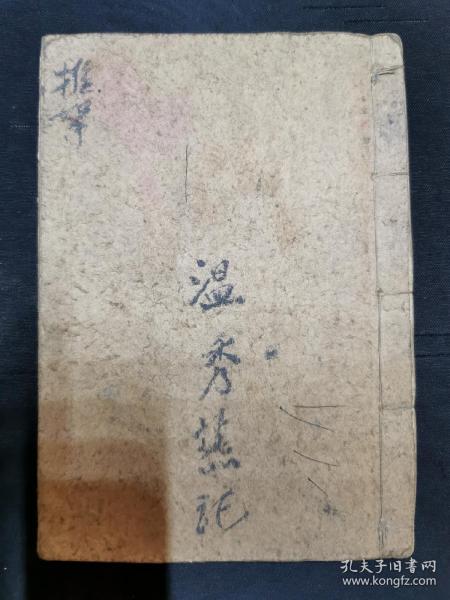 推算
温秀慈记
孔夫子旧书网
www.kongfz.com